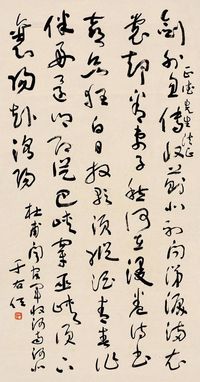 正德先生法正
劍外忽傳收薊北初聞涕淚滿衣
裳却看妻子愁何在漫卷詩書
喜欲狂白日放歌須縱酒青春作
伴好還鄉即從巴峽穿巫峽下
襄陽洛陽
杜甫聞官軍收河南河北
于右任